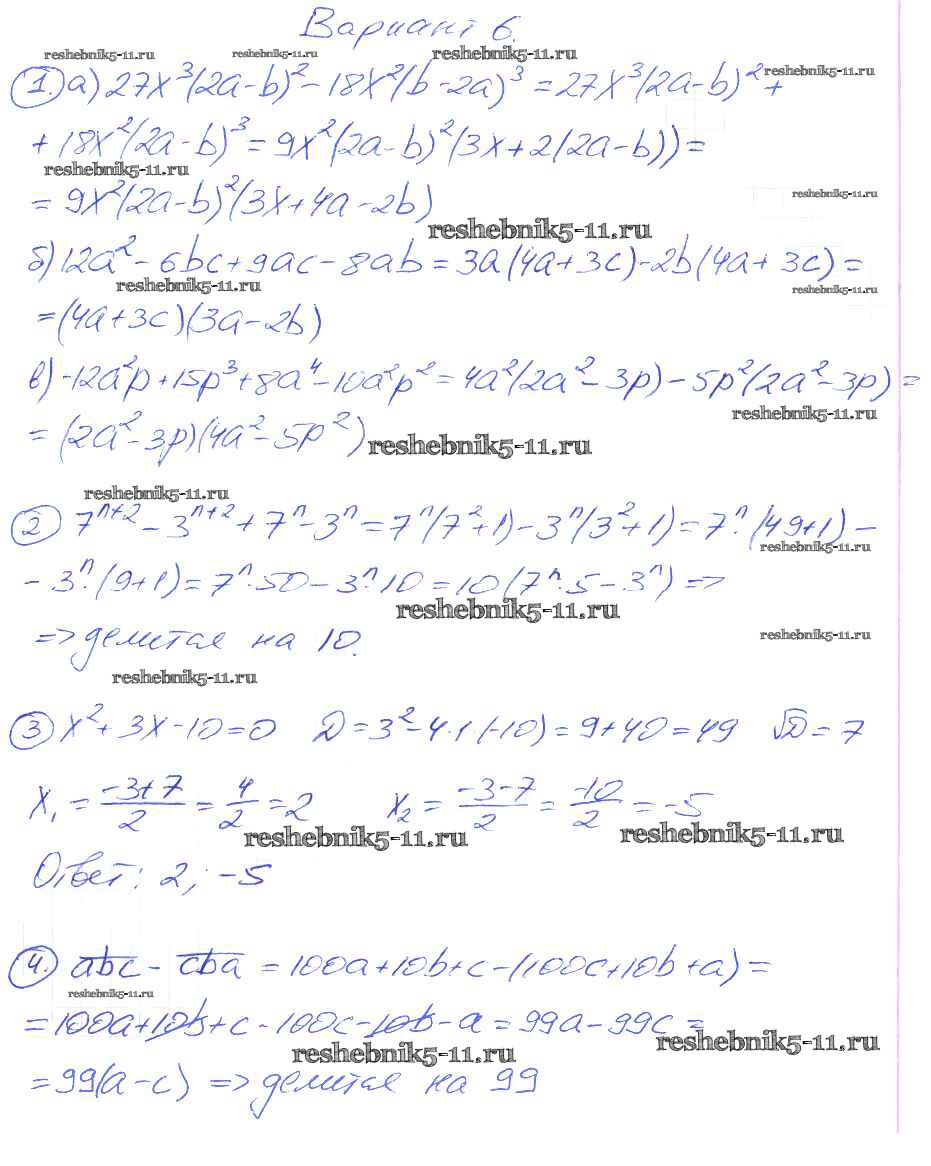 Вариант 6.
reshebnik5-11.ru reshebnik5-11.ru reshebnik5-11.ru
1. а) 27x³(2a-b)² - 18x²(b-2a)³ = 27x³(2a-b)² +
reshebnik5-11.ru
+ 18x²(2a-b)³ = 9x²(2a-b)²(3x+2(2a-b)) =
reshebnik5-11.ru
= 9x²(2a-b)²(3x+4a-2b)
reshebnik5-11.ru
reshebnik5-11.ru
б) 12a² - 6bc + 9ac - 8ab = 3a(4a+3c) - 2b(4a+3c) =
reshebnik5-11.ru reshebnik5-11.ru
= (4a+3c)(3a-2b)
в) -12a²p + 15p³ + 8a⁴ - 10a²p² = 4a²(2a²-3p) - 5p²(2a²-3p) =
reshebnik5-11.ru
= (2a²-3p)(4a²-5p²)
reshebnik5-11.ru
reshebnik5-11.ru
2 7ⁿ⁺² - 3ⁿ⁺² + 7ⁿ - 3ⁿ = 7ⁿ(7²+1) - 3ⁿ(3²+1) = 7ⁿ·(49+1) -
reshebnik5-11.ru
- 3ⁿ·(9+1) = 7ⁿ·50 - 3ⁿ·10 = 10(7ⁿ·5 - 3ⁿ) =>
reshebnik5-11.ru
=> делится на 10.
reshebnik5-11.ru
reshebnik5-11.ru
3 x² + 3x - 10 = 0 D = 3² - 4·1(-10) = 9+40 = 49 √D = 7
x₁ = (-3+7)/2 = 4/2 = 2 x₂ = (-3-7)/2 = -10/2 = -5
reshebnik5-11.ru reshebnik5-11.ru
Ответ: 2; -5
4. a̅b̅c̅ - c̅b̅a̅ = 100a+10b+c-(100c+10b+a) =
reshebnik5-11.ru
= 100a+10b+c-100c-10b-a = 99a-99c =
reshebnik5-11.ru reshebnik5-11.ru
= 99(a-c) => делится на 99